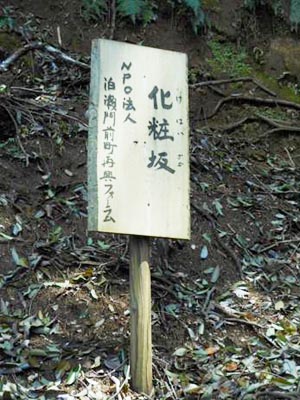 化粧坂
けはいざか
NPO法人
泊瀬門前町再興フォーラム